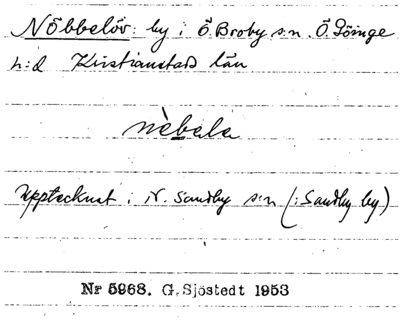 Nöbbelöv: by i Ö. Broby s:n. Ö. Göinge
h:d Kristianstads län
nèbela
Upptecknat i N. Sandby s:n (i Sandby by)
Nr 5968. G. Sjöstedt 1953